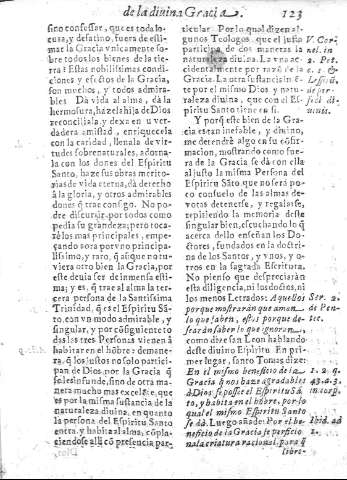 de la divina Gracia.
123
sino confessar, que es toda lo-
cura, y desatino, fuera de esti-
mar la Gracia vnicamente so-
bre todos los bienes de la tie-
rra: Estas nobilissimas condi-
ciones y efectos de la Gracia,
son muchos, y todos admira-
bles. Dà vida al alma, dà la
hermosura, haze la hija de Dios
reconciliala, y dexa en ver-
dadera amistad, enriquecela
con la caridad, llenala de vir-
tudes sobrenaturales, adorna-
la con los dones del Espiritu
Santo, haze sus obras merito-
rias de vida eterna, dà derecho
à la gloria, y otros admirables
dones q̃ trae consigo. No po-
dre discurrir por todos como
pedia su grandeza; pero toca-
rè los mas principales, empe-
çando aora por vno principa-
lissimo, y raro, q̃ aunque no tu-
viera otro bien la Gracia, por
este devia ser de inmensa esti-
ma; y es, q̃ trae al alma la ter-
cera persona de la Santissima
Trinidad, q̃ es el Espiritu Sã-
to, con vn modo admirable, y
singular, y por cõsiguiente to-
das las tres Personas vienen à
habitar en el hõbre; de mane-
ra, q̃ los justos no solo partici-
pan de Dios por la Gracia q̃
se les infunde, sino de otra ma-
nera mucho mas excelẽte, que
es por la misma sustancia de la
naturaleza divina, en quanto
la persona del Espiritu Santo
entra, y habita al alma, cõpla-
ciendose alli cõ presencia par-
ticular. Por lo qual dizen al-
gunos Teologos, que el justo
participa de dos maneras la
naturaleza divina. La vna ac-
cidentalmente por razõ de la
Gracia. La otra sustancial de Es-
piritu por el mismo Dios y na-
turaleza divina, que con el Es-
piritu Santo tiene en si.
Y porq̃ este bien de la Gra-
cia es tan inefable, y divino,
me detendrè algo en su cõfir-
macion, mostrando como fue-
ra de la Gracia se dà con ella
al justo la misma Persona del
Espiritu Sãto, que no serà po-
co consuelo de las almas de-
votas detenerse, y regalarse,
repitiendo la memoria deste
singular bien, escuchando lo q̃
acerca dello enseñan los Do-
ctores, fundados en la doctri-
na de los Santos, y vnos, y o-
tros en la sagrada Escritura.
No pienso que despreciaràn
esta diligencia, ni los doctos, ni
los menos Letrados: Aquellos
porque mostraràn que aman
lo que saben, estos porque de-
searàn saber lo que ignoran,
como dize san Leon hablando
deste divino Espiritu. En pri-
mer lugar, santo Tomas dize:
En el mismo beneficio de la
Gracia q̃ nos haze agradables
à Dios se possee el Espiritu Sã-
to, y habita en el hõbre, por lo
qual el mismo Espiritu Santo
se dà. Luego añade: Por el be-
neficio de la Gracia se perficio-
na la criatura racional, para q̃
libre-
V. Cor-
nel. in
2. Pet.
c. 1. &
Lessiũ,
de per-
fect. di-
uinis.
Ser. 2.
de Pen-
tec.
1. 2. q.
43. a. 3.
in corp.
Ibid. ad